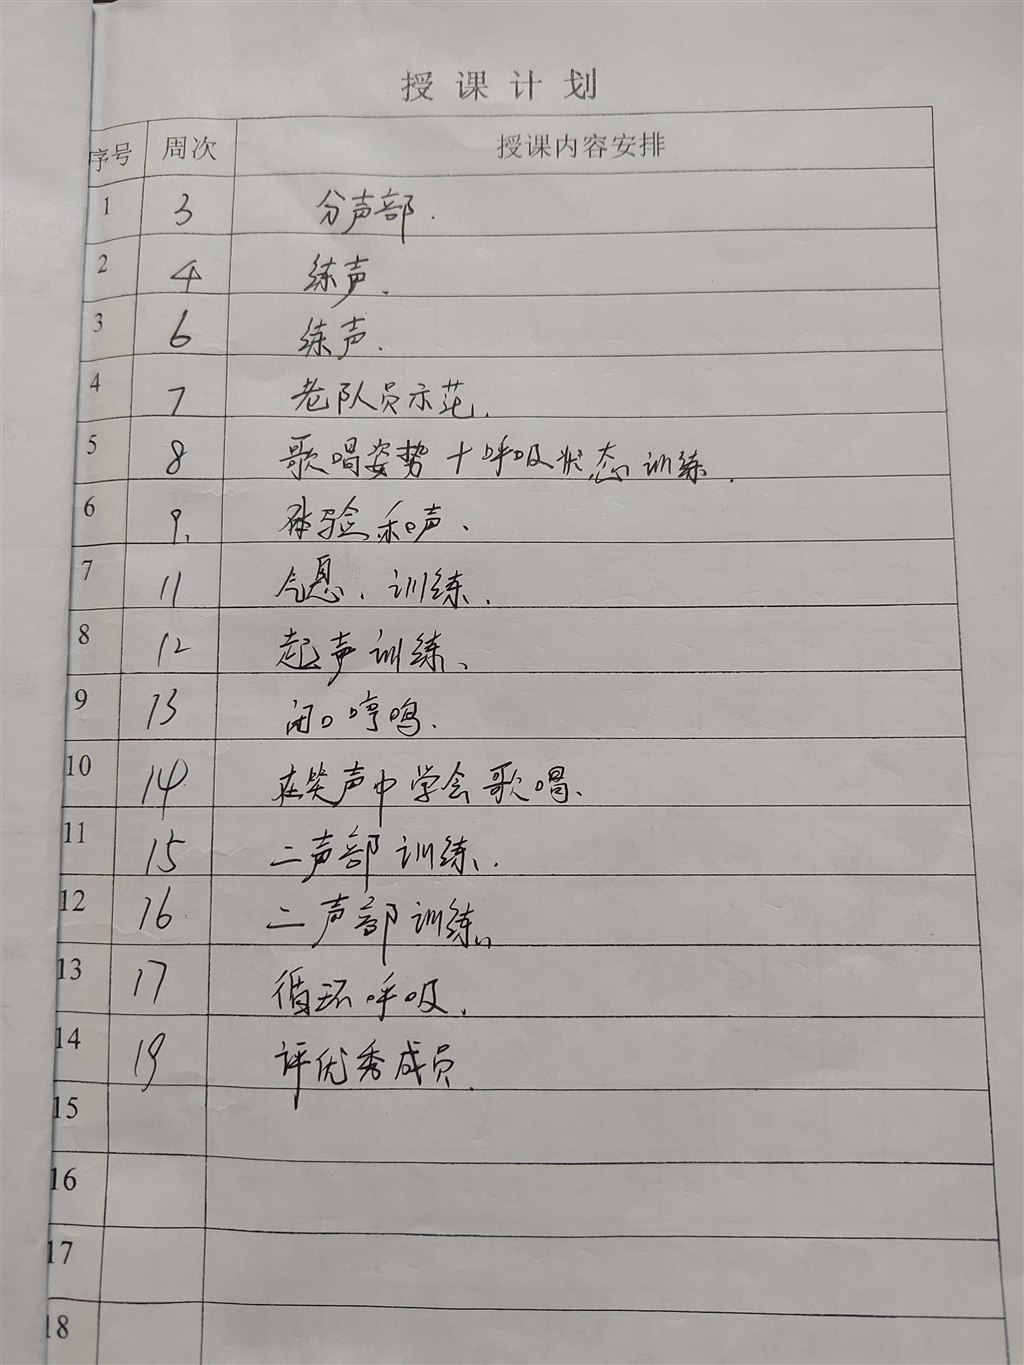 授课计划
序号 周次 授课内容安排
1 3 分声部.
2 4 练声.
3 6 练声.
4 7 老队员示范.
5 8 歌唱姿势+呼吸状态训练.
6 9. 体验和声、
7 11 气息、训练、
8 12 起声训练、
9 13 闭口哼鸣.
10 14 在笑声中学会歌唱、
11 15 二声部训练、.
12 16 二声部训练、
13 17 循环呼吸.
14 19 评优秀成员.
15
16
17
18